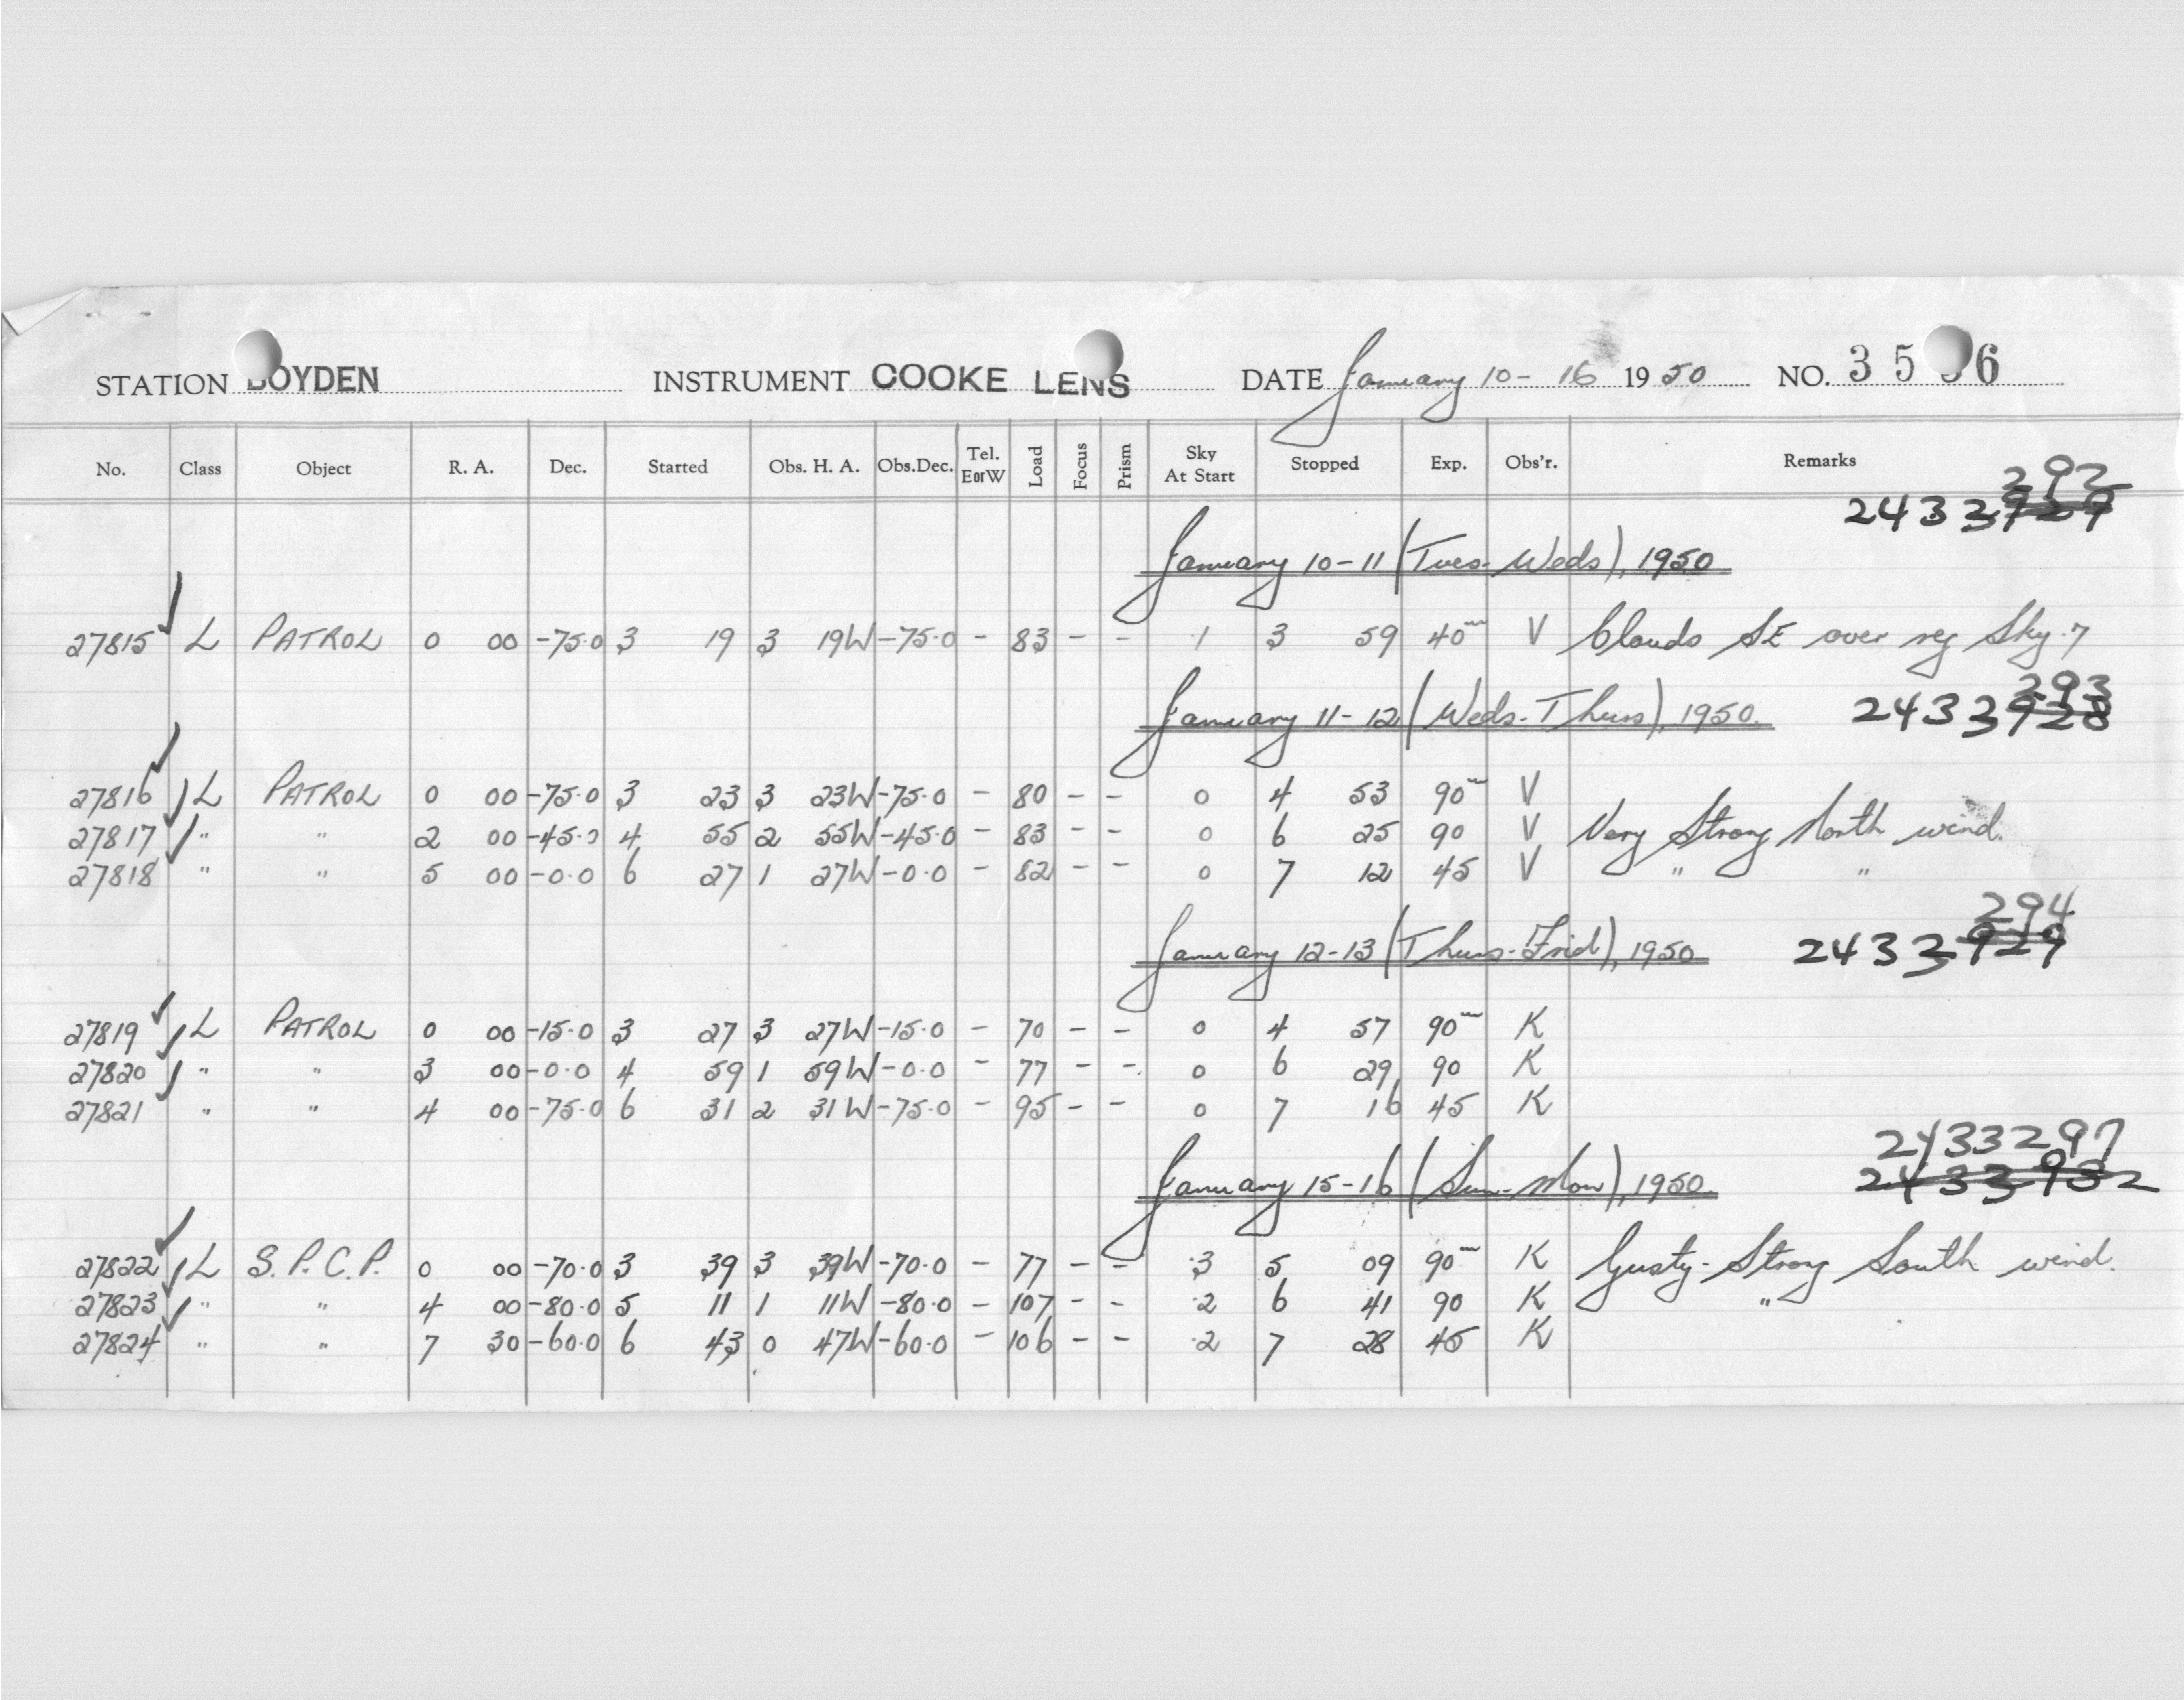 STATION BOYDEN INSTRUMENT COOKE LENS DATE January 10-16 1950 NO. 35 6
No. Class Object R. A. Dec. Started Obs. H. A. Obs.Dec. Tel. E or W Load Focus Prism Sky At Start Stopped Exp. Obs'r. Remarks
292
2433929
January 10-11 (Tues-Weds), 1950
27815 L PATROL 0 00 -75.0 3 19 3 19W -75.0 - 83 - - .1 3 59 40m V Clouds SE over reg Sky .7
293
January 11-12 (Weds-Thurs), 1950. 2433928
27816 L PATROL 0 00 -75.0 3 23 3 23W -75.0 - 80 - - 0 4 53 90m V
27817 " " 2 00 -45.0 4 55 2 55W -45.0 - 83 - - 0 6 25 90 V Very Strong North wind.
27818 " " 5 00 -0.0 6 27 1 27W -0.0 - 82 - - 0 7 12 45 V " "
294
January 12-13 (Thurs-Frid), 1950 2433929
27819 L PATROL 0 00 -15.0 3 27 3 27W -15.0 - 70 - - 0 4 57 90m K
27820 " " 3 00 -0.0 4 59 1 59W -0.0 - 77 - - 0 6 29 90 K
27821 " " 4 00 -75.0 6 31 2 31W -75.0 - 95 - - 0 7 16 45 K
2433297
January 15-16 (Sun-Mon), 1950. 2433932
27822 L S.P.C.P. 0 00 -70.0 3 39 3 39W -70.0 - 77 - - .3 5 09 90m K Gusty-Strong South wind.
27823 " " 4 00 -80.0 5 11 1 11W -80.0 - 107 - - .2 6 41 90 K "
27824 " " 7 30 -60.0 6 43 0 47W -60.0 - 106 - - .2 7 28 45 K